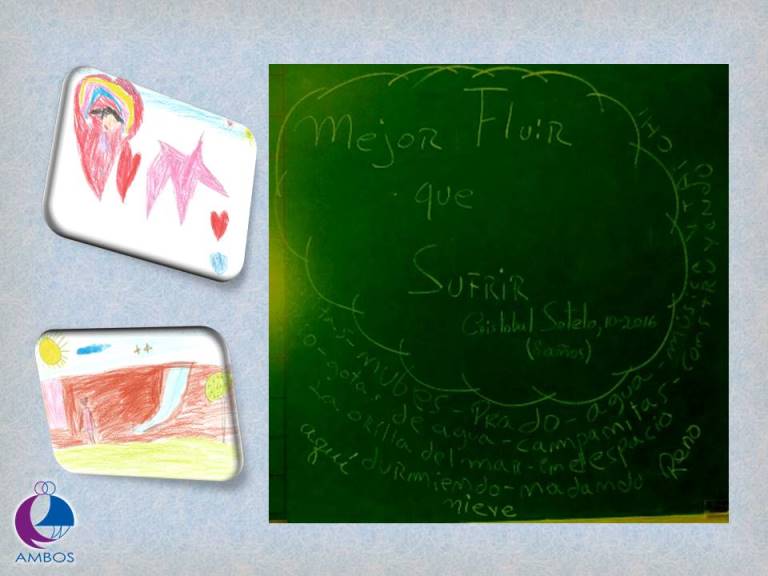 Mejor Fluir
que
Sufrir
Cristobal Sotelo, 10-2016
(8 años)
nubes - Prado - agua - musica
notas de agua - campanitas - construyendo
La orilla del mar - en el espacio
aquí durmiendo - nadando
nieve
AMBOS